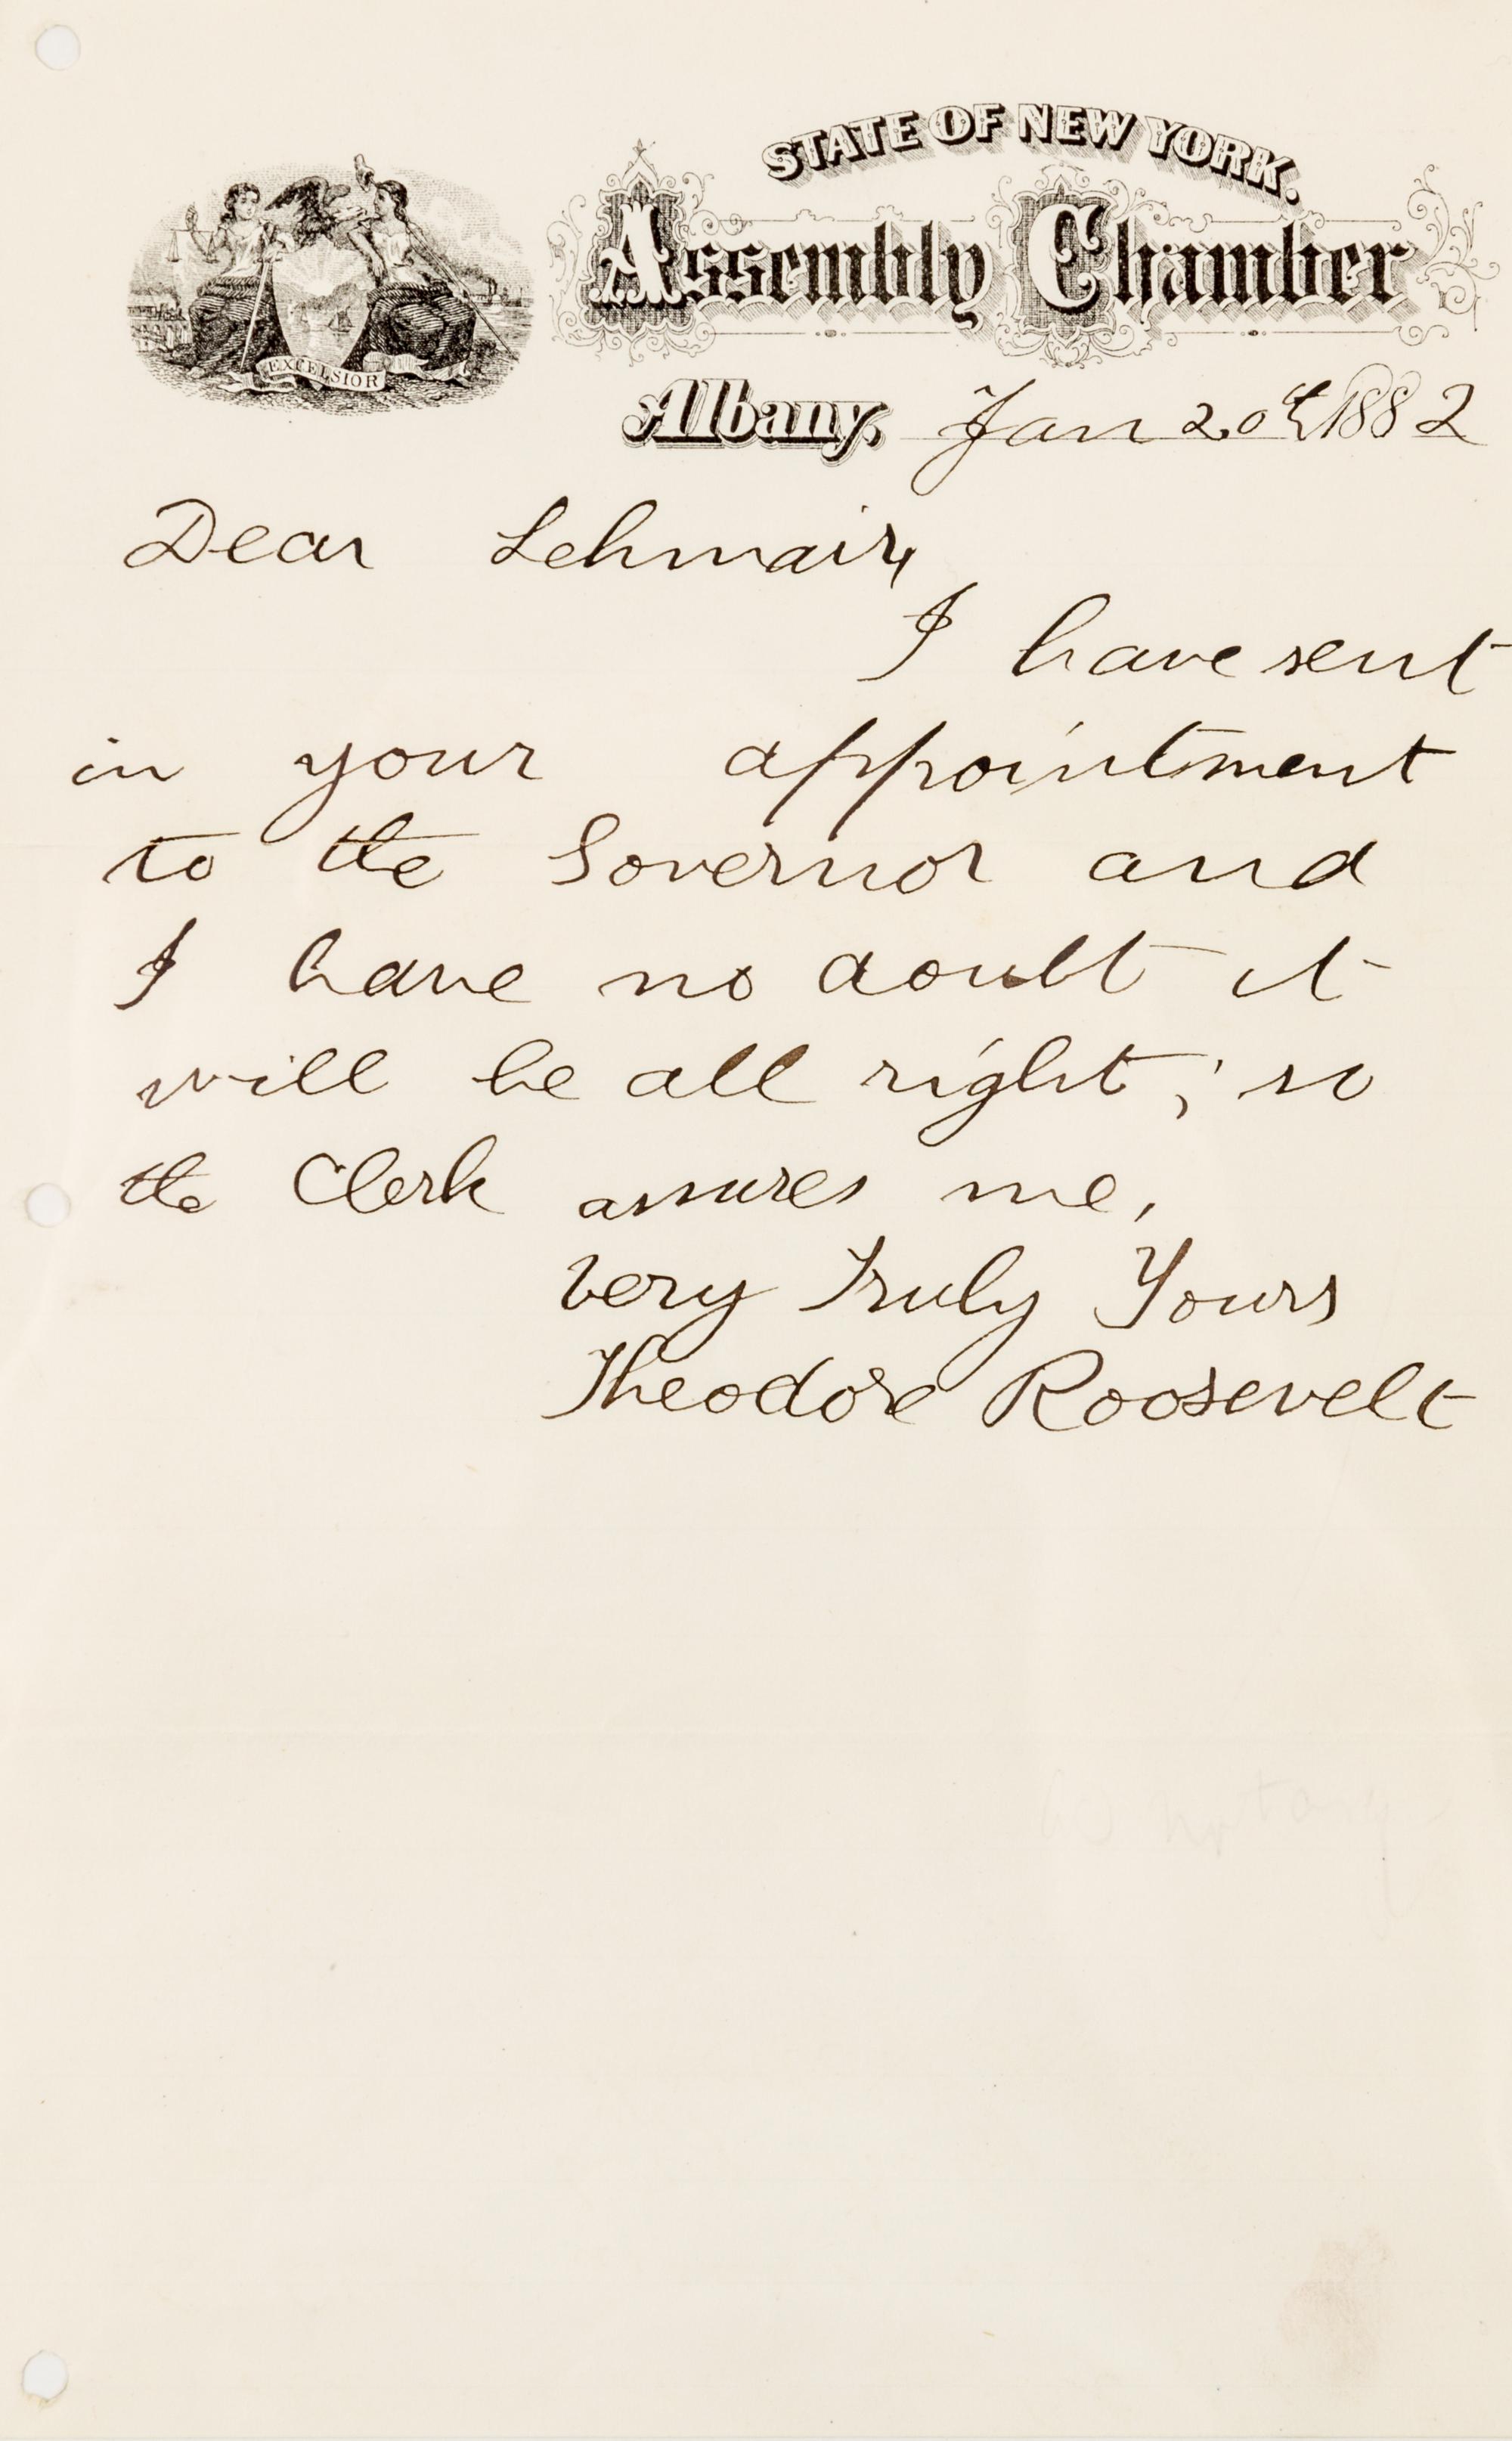 STATE OF NEW YORK.
Assembly Chamber
EXCELSIOR
Albany, Jan 20th 1882
Dear Lehmair,
I have sent
in your appointment
to the Governor and
I have no doubt it
will be all right; so
the Clerk assures me,
Very Truly Yours
Theodore Roosevelt